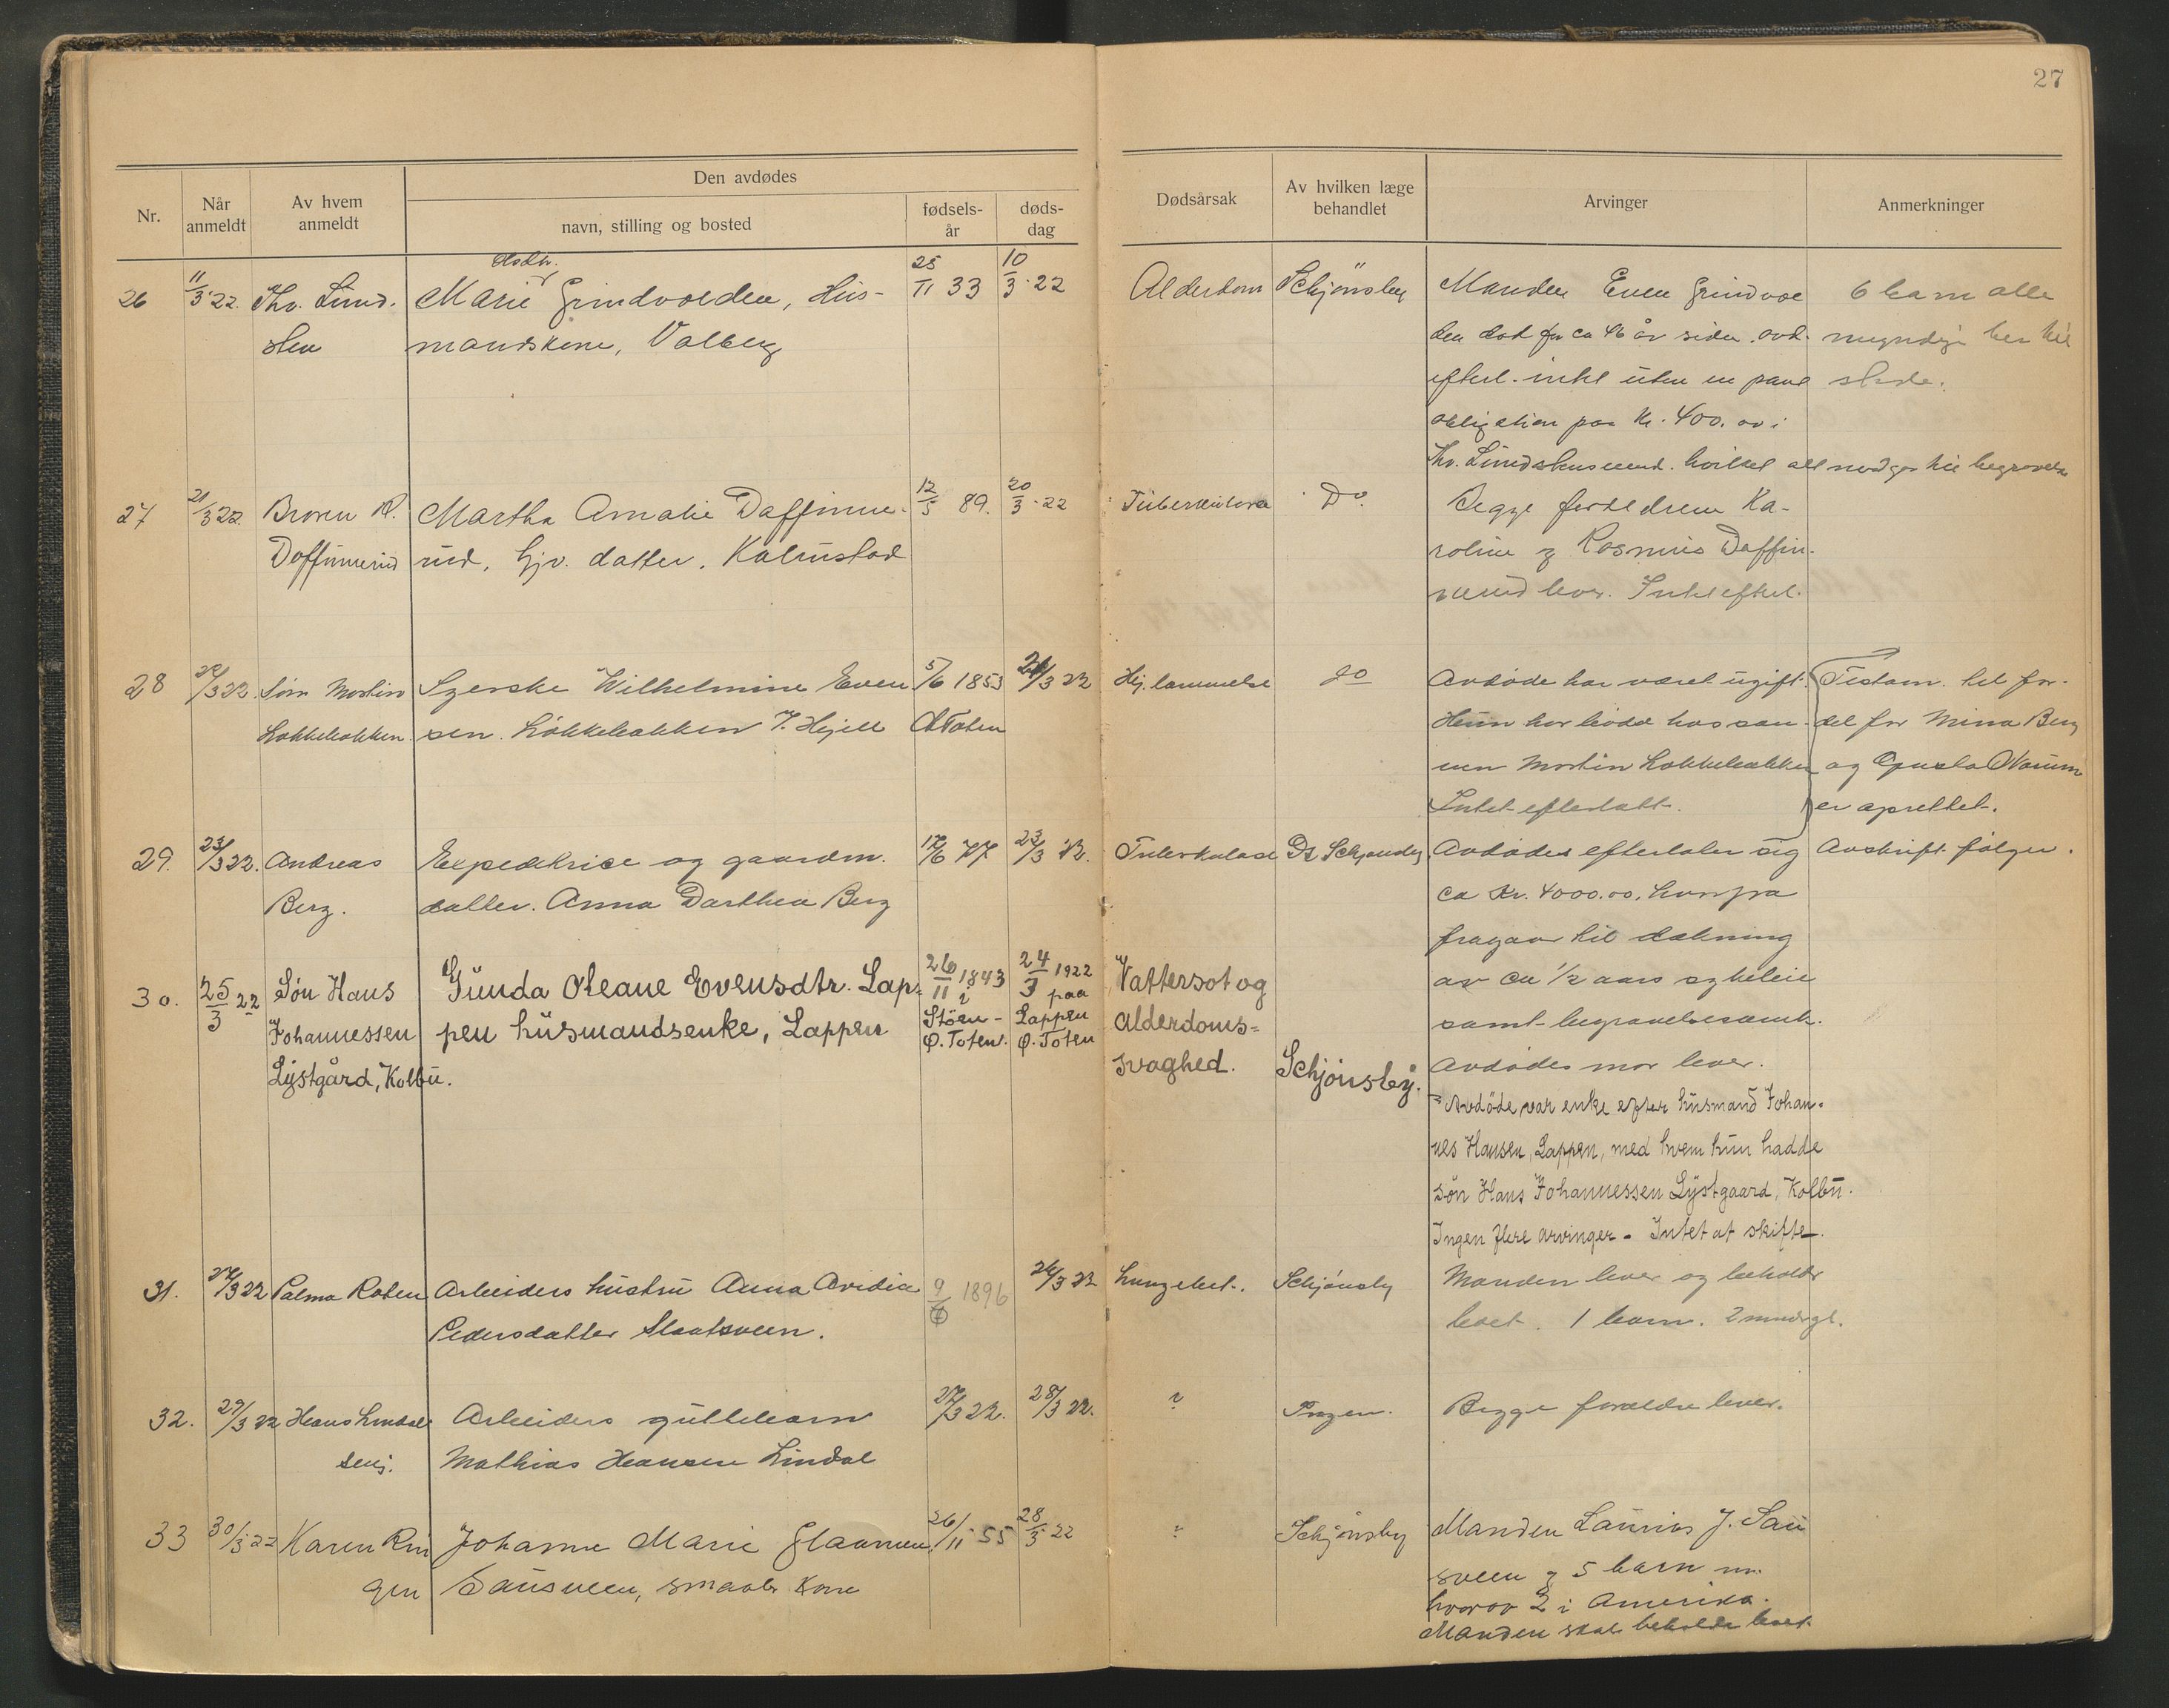 27
Nr.
Når anmeldt
Av hvem anmeldt
Den avdødes
navn, stilling og bosted
fødsels-år
døds-dag
Dødsårsak
Av hvilken læge behandlet
Arvinger
Anmerkninger
26 11/3 22. Thv. Lund-
sten
Olsdtr.
Marie Grindvolden, Hus-
mandskone, Valberg
25/11 33 10/3 22
Alderdom Schjønsby
Manden Even Grindvol
den død for ca 46 år siden. avd.
efterl. intet uten en pant
obligation paa Kr. 400.00 i
Thv. Lundstens eiend. hvilket alt medgår til begravelse
6 barn alle
myndige her til
stede.
27 21/3 22 R.
Daffinrud
Martha Amalie Daffinne-
rud, Gjv. datter, Kalrustad
12/5 89. 20/3 22
Tuberkulose Do.
Begge forældrene Ka-
roline og Rasmus Daffin-
rud lever. Intet efterl.
28 /3 22. Søn Martin
Løkkebakken
Syerske Wilhelmine Even
sen. Løkkebakken
5/6 1853 21/3 22
Ø Toten
Hj. lammelse do
Avdøde har været ugift.
Hun har bodd hos søn-
nen Martin Løkkebakken
Intet efterlatt.
Testam. til for-
del for Mina Berg
og
er oprettet.
29. 23/3 22. Andreas
Berg.
Expeditrice og gaardm.
datter. Anna Dorthea Berg
12/6 77 23/3 22.
Tuberkulose Dr Schjønsby
Avdødes efterlater sig
ca Kr. 4000.00. hvorfra
fragaar til dækning
av ca 1/2 aars sykeleie
samt begravelsesomk.
Avdødes mor lever.
Avskrift følger.
30. 25/3 22 Søn Hans
Johannessen
Lystgård, Kolbu.
Gunda Oleane Evensdtr. Lap-
pen husmandsenke, Lappen
26/11 1843 i
Støen-
Ø. Toten.
24/3 1922 paa
Lappen
Ø. Toten
Vattersot og
alderdoms-
svaghed.
Schjønsby.
Avdøde var enke efter husmand Johan-
nes Hansen, Lappen, med hvem hun hadde
søn Hans Johannessen Lystgaard, Kolbu.
Ingen flere arvinger. Intet at skifte.
31. 27/3 22 Palma Roten
Arbeiders hustru Anna Avidia
Pedersdatter Slaatsveen.
9/6 1896 26/3 22
Lungebet. Schjønsby
Manden lever og beholder
boet. 1 barn. 2 mndr gl.
32. 29/3 22 Hans Lindal
senj.
Arbeiders guttebarn
Mathias Hansen Lindal
27/3 22. 28/3 22.
? Ingen.
Begge forældre lever.
33 30/3 22 Karen Rin
gen
Johanne Marie Glaamen
Sausveen, smaabr. Kone
26/11 55 28/3 22
? Schjønsby
Manden Laurius J. Sau
sveen og 5 barn m.
hvorav 2 i Amerika.
Manden skal beholde boet.